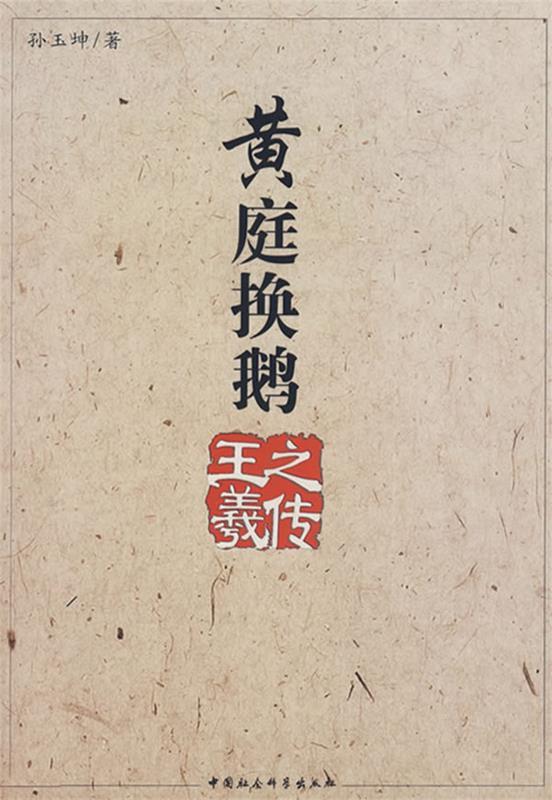 孙玉坤/著
黄庭换鹅
王羲之传
中国社会科学出版社